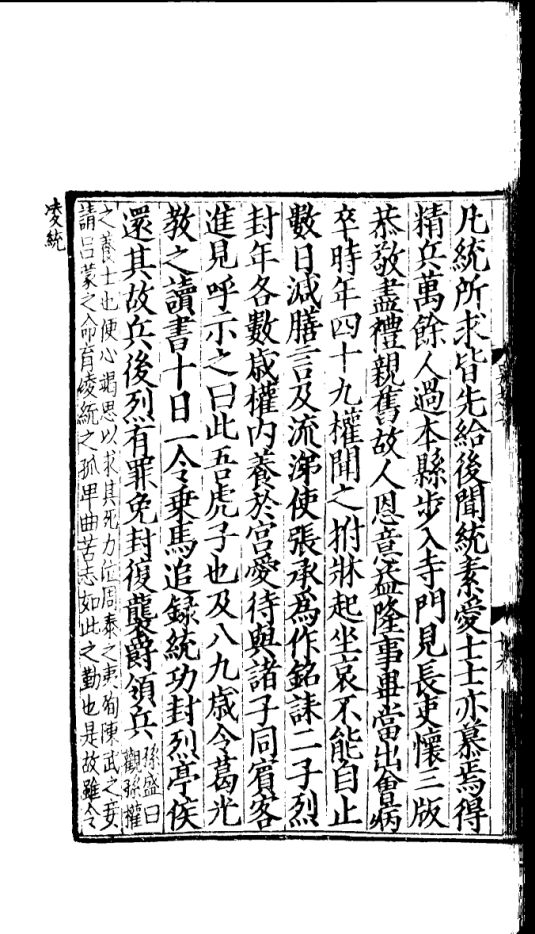 凡統所求皆先給後聞統素愛士士亦慕焉得
精兵萬餘人過本縣步入寺門見長吏懷三版
恭敬盡禮親舊故人恩意益隆事畢當出會病
卒時年四十九權聞之拊牀起坐哀不能自止
數日減膳言及流涕使張承爲作銘誄二子烈
封年各數歲權內養於宮愛待與諸子同賓客
進見呼示之曰此吾虎子也及八九歲令葛光
教之讀書十日一令乗馬追録統功封烈亭侯
還其故兵後烈有罪免封復襲爵領兵
孫盛曰
觀孫權
之養士也傾心竭思以求其死力泣周泰之夷殉陳武之妾
請呂蒙之命育凌統之孤卑曲苦志如此之勤也是故雖令
凌統